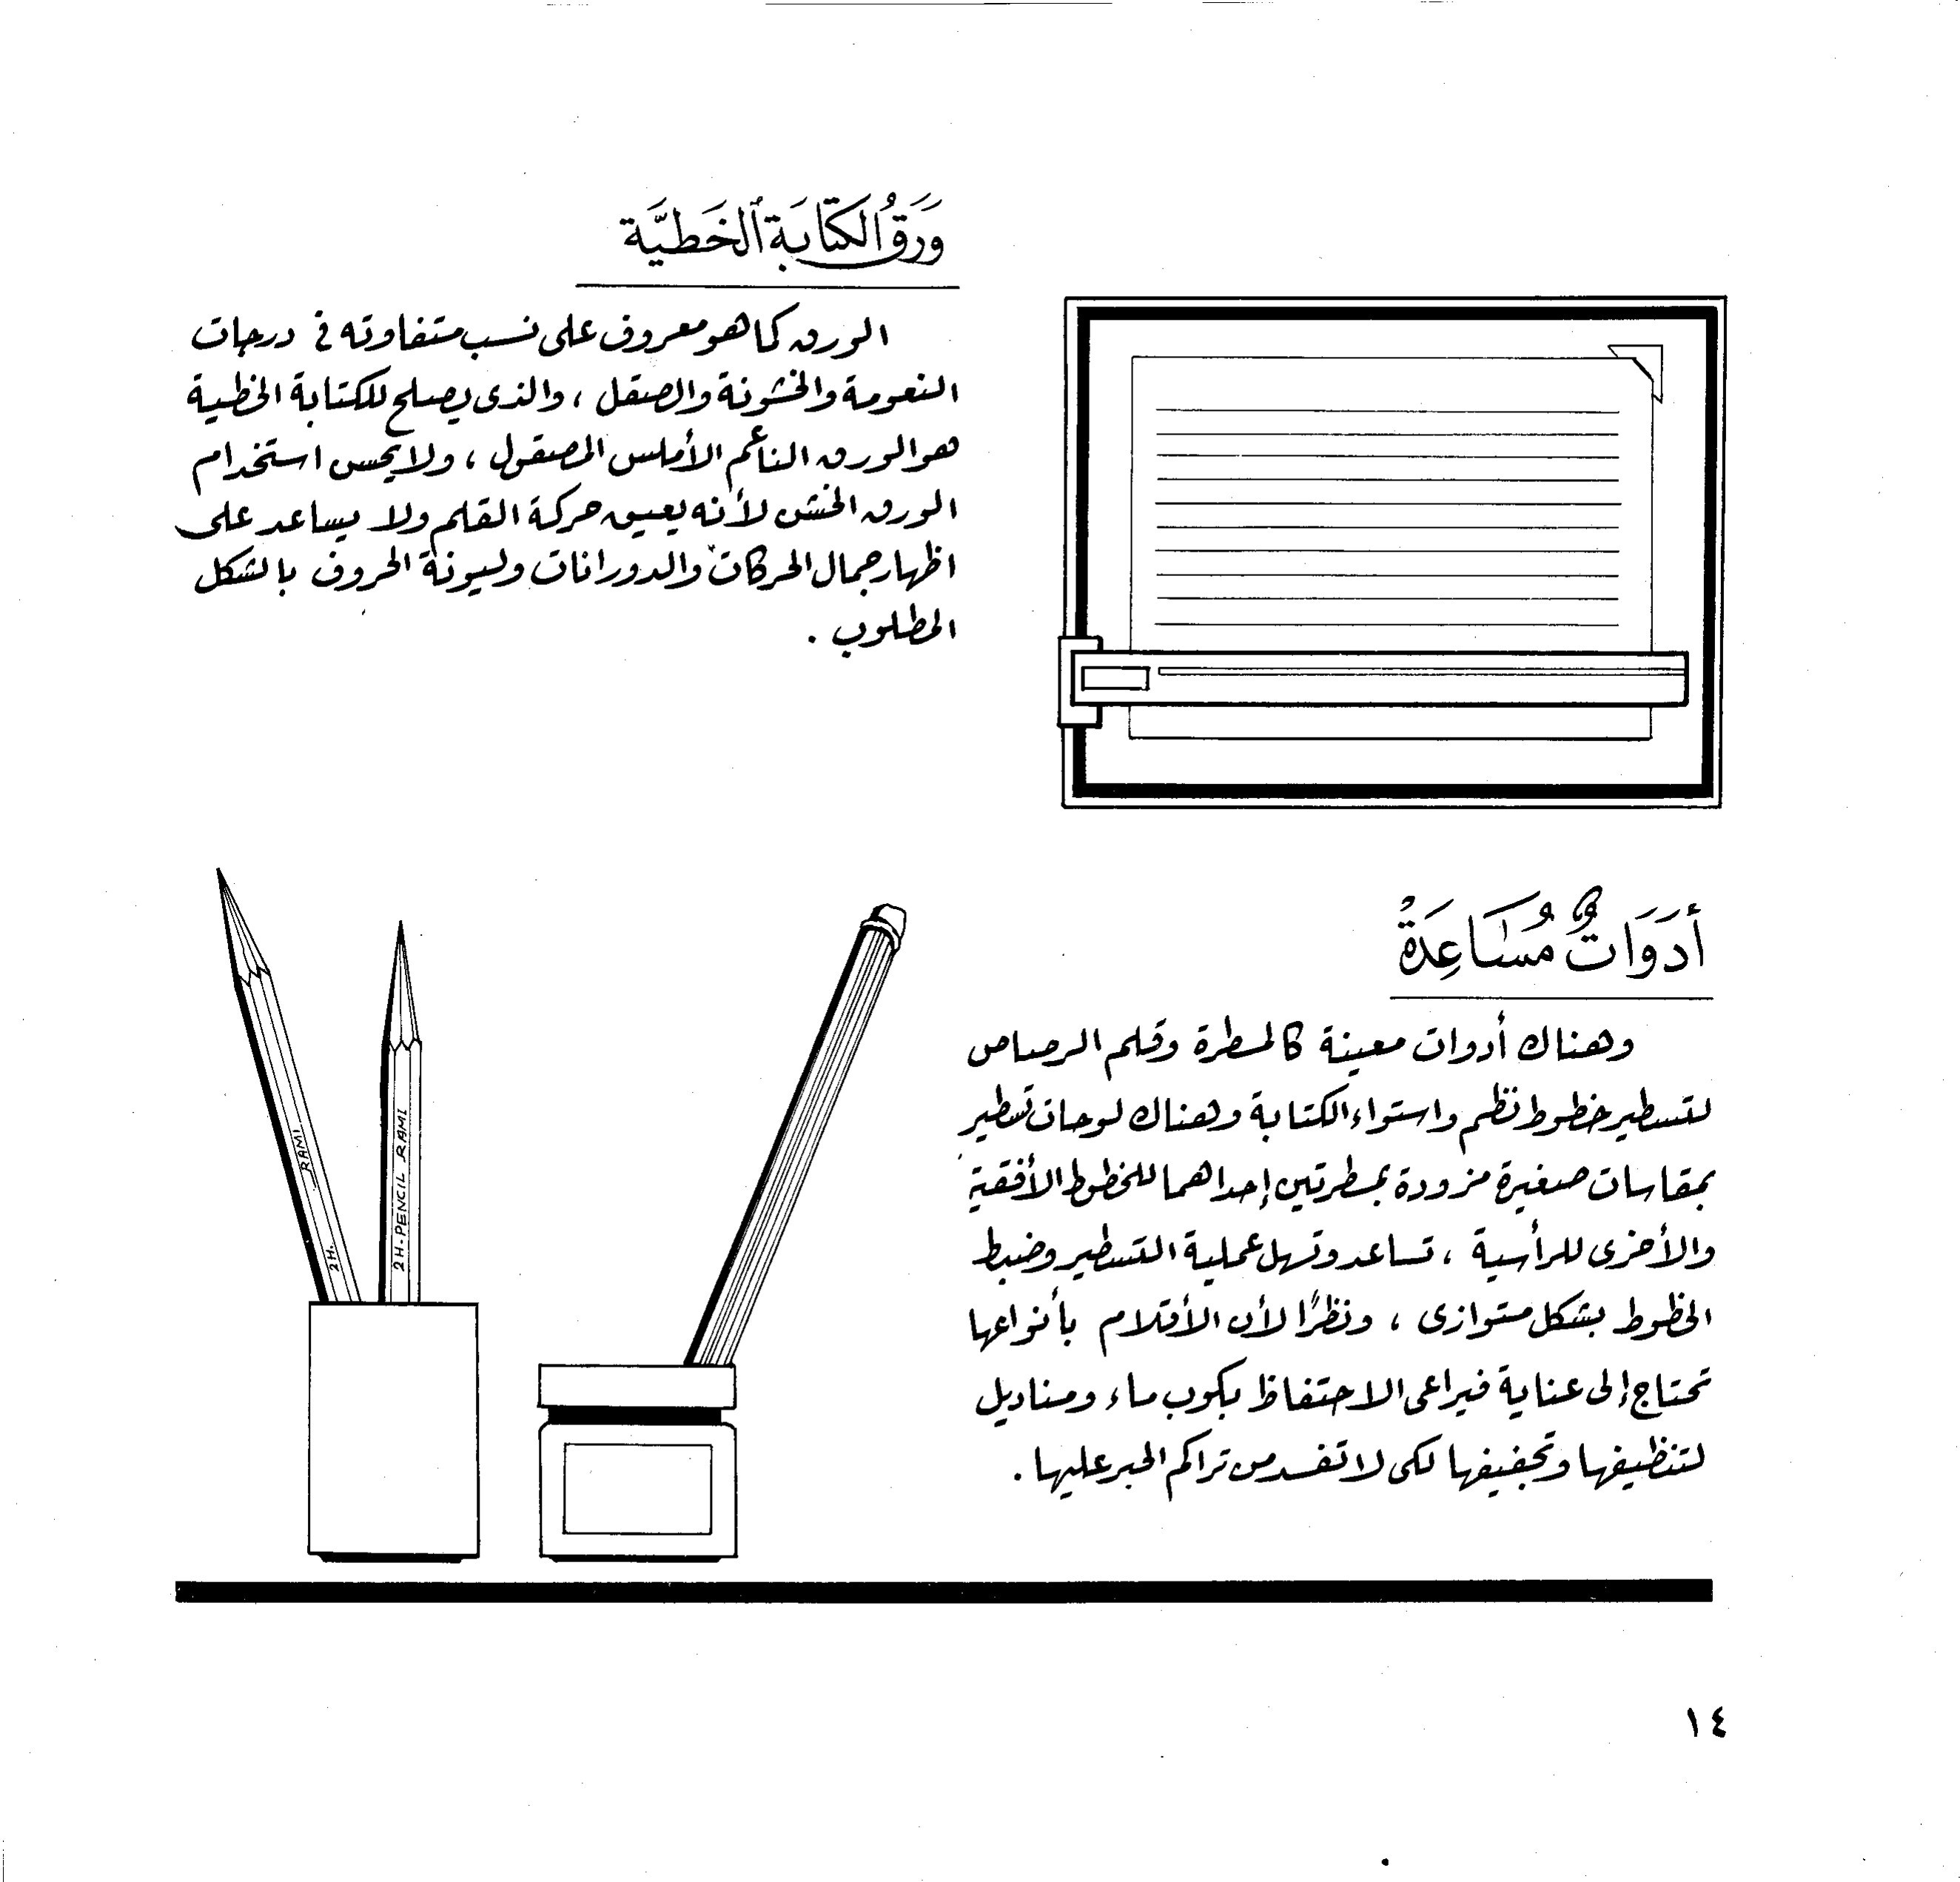 وَرَقُ الكِتَابَةِ الخَطِيَّة
الورق كما هو معروف على نسب متفاوته في درجات
النعومة والخشونة والصقل ، والذى يصلح للكتابة الخطية
هو الورق الناعم الأملس المصقول ، ولا يحسن استخدام
الورق الخشن لأنه يعيق حركة القلم ولا يساعد على
اظهار جمال الحركات والدورانات وليونة الحروف بالشكل
المطلوب .
أَدَوَاتٌ مُسَاعِدَةٌ
وهناك أدوات معينة كالمسطرة وقلم الرصاص
لتسطير خطوط نظم واستواء الكتابة وهناك لوحات تسطير
بمقاسات صغيرة مزودة بمسطرتين إحداهما للخطوط الأفقية
والأخرى للرأسية ، تساعد وتسهل عملية التسطير وضبط
الخطوط بشكل متوازى ، ونظرًا لأن الأقلام بأنواعها
تحتاج إلى عناية فيراعى الاحتفاظ بكوب ماء ومناديل
لتنظيفها وتجفيفها لكى لا تفسد من تراكم الحبر عليها .
2 H. RAMI
2 H-PENCIL RAMI
١٤